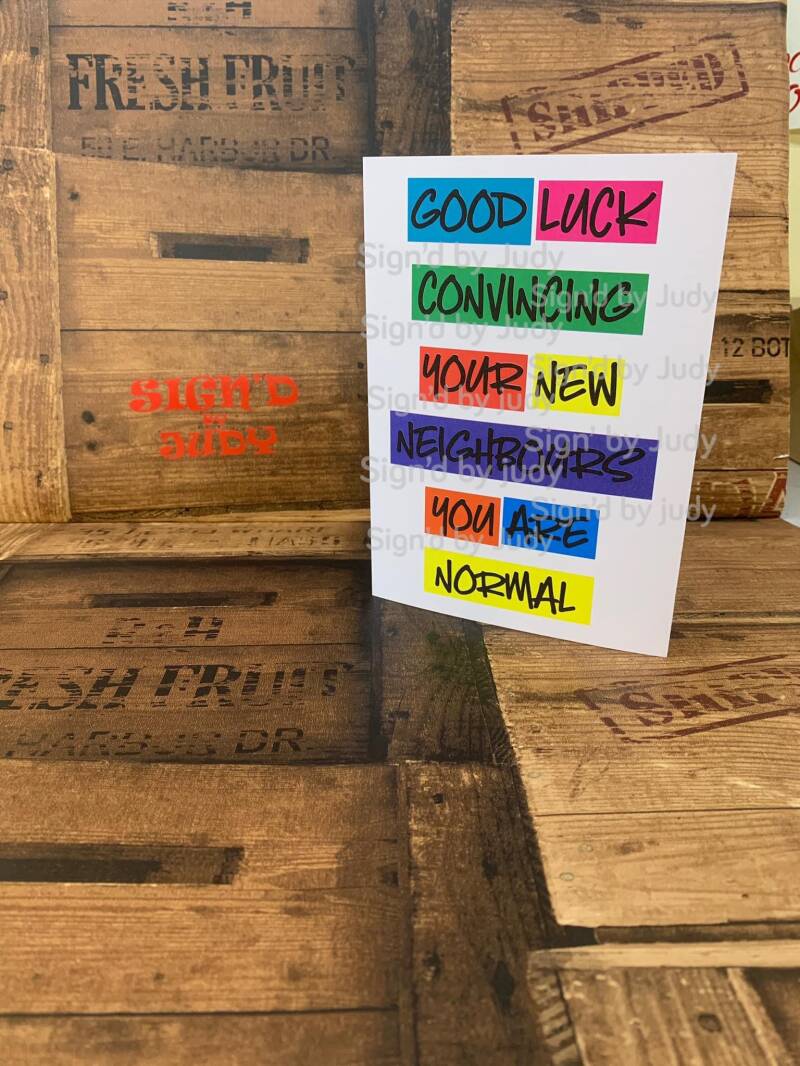 FRESH FRUIT
50 E. HARBOUR DR.
SIGN'D
BY
JUDY
12 BOT
GOOD LUCK
CONVINCING
YOUR NEW
NEIGHBOURS
YOU ARE
NORMAL
Sign'd by Judy
Sign'd by Judy
Sign'd by Judy
Sign'd by Judy
Sign'd by Judy
Sign'd by Judy
Sign'd by Judy
Sign'd by Judy
Sign'd by judy
FRESH FRUIT
HARBOUR DR.